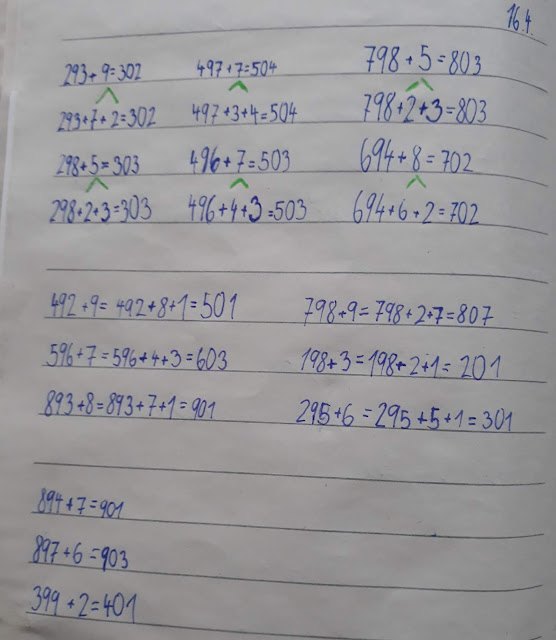 16.4.
293+9=302 497+7=504 798+5=803
293+7+2=302 497+3+4=504 798+2+3=803
298+5=303 496+7=503 694+8=702
298+2+3=303 496+4+3=503 694+6+2=702
492+9=492+8+1=501 798+9=798+2+7=807
596+7=596+4+3=603 198+3=198+2+1=201
893+8=893+7+1=901 295+6=295+5+1=301
894+7=901
897+6=903
399+2=401